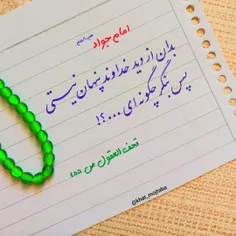 امام جواد
بدان از دید خداوند پنهان نیستی
پس بنگر چگونه‌ای ....؟!
تحف العقول ص ۴۵۵
@khat_mojtaba